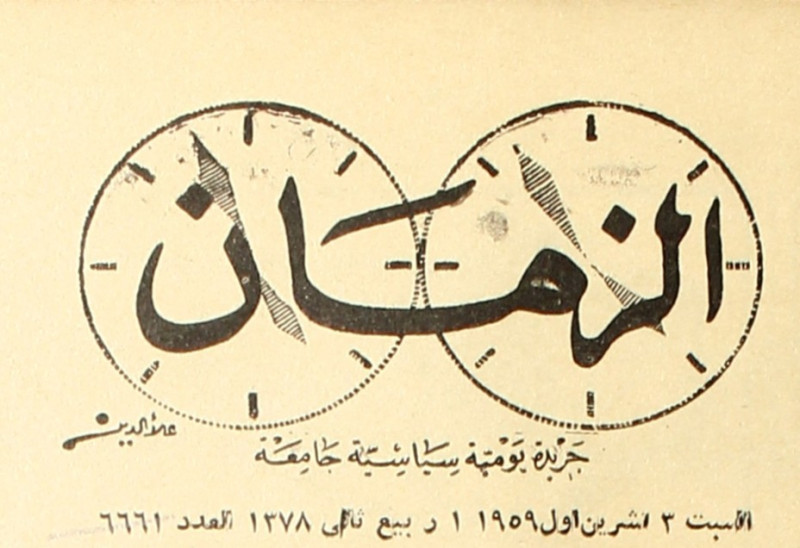 الزمان
علاءالدين
جَريدة يَوْميّة سِيَاسِيّة جَامِعَة
السبت ٣ تشرين اول ١٩٥٩ ١ ربيع ثاني ١٣٧٨ العدد ٦٦٦١